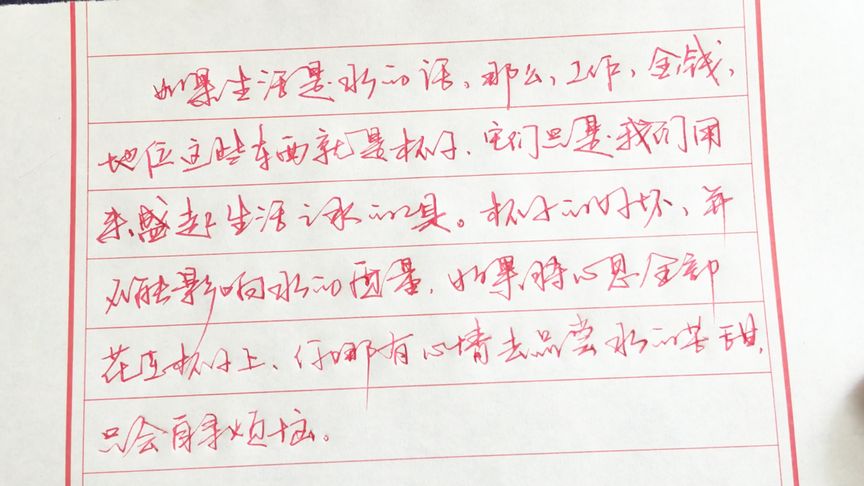 如果生活是水的话、那么、工作、金钱、
地位这些东西就是杯子、它们只是我们用
来盛起生活之水的工具。杯子的好坏、并
不能影响水的质量、如果将心思全部
花在杯子上、你哪有心情去品尝水的苦甜、
只会自寻烦恼。